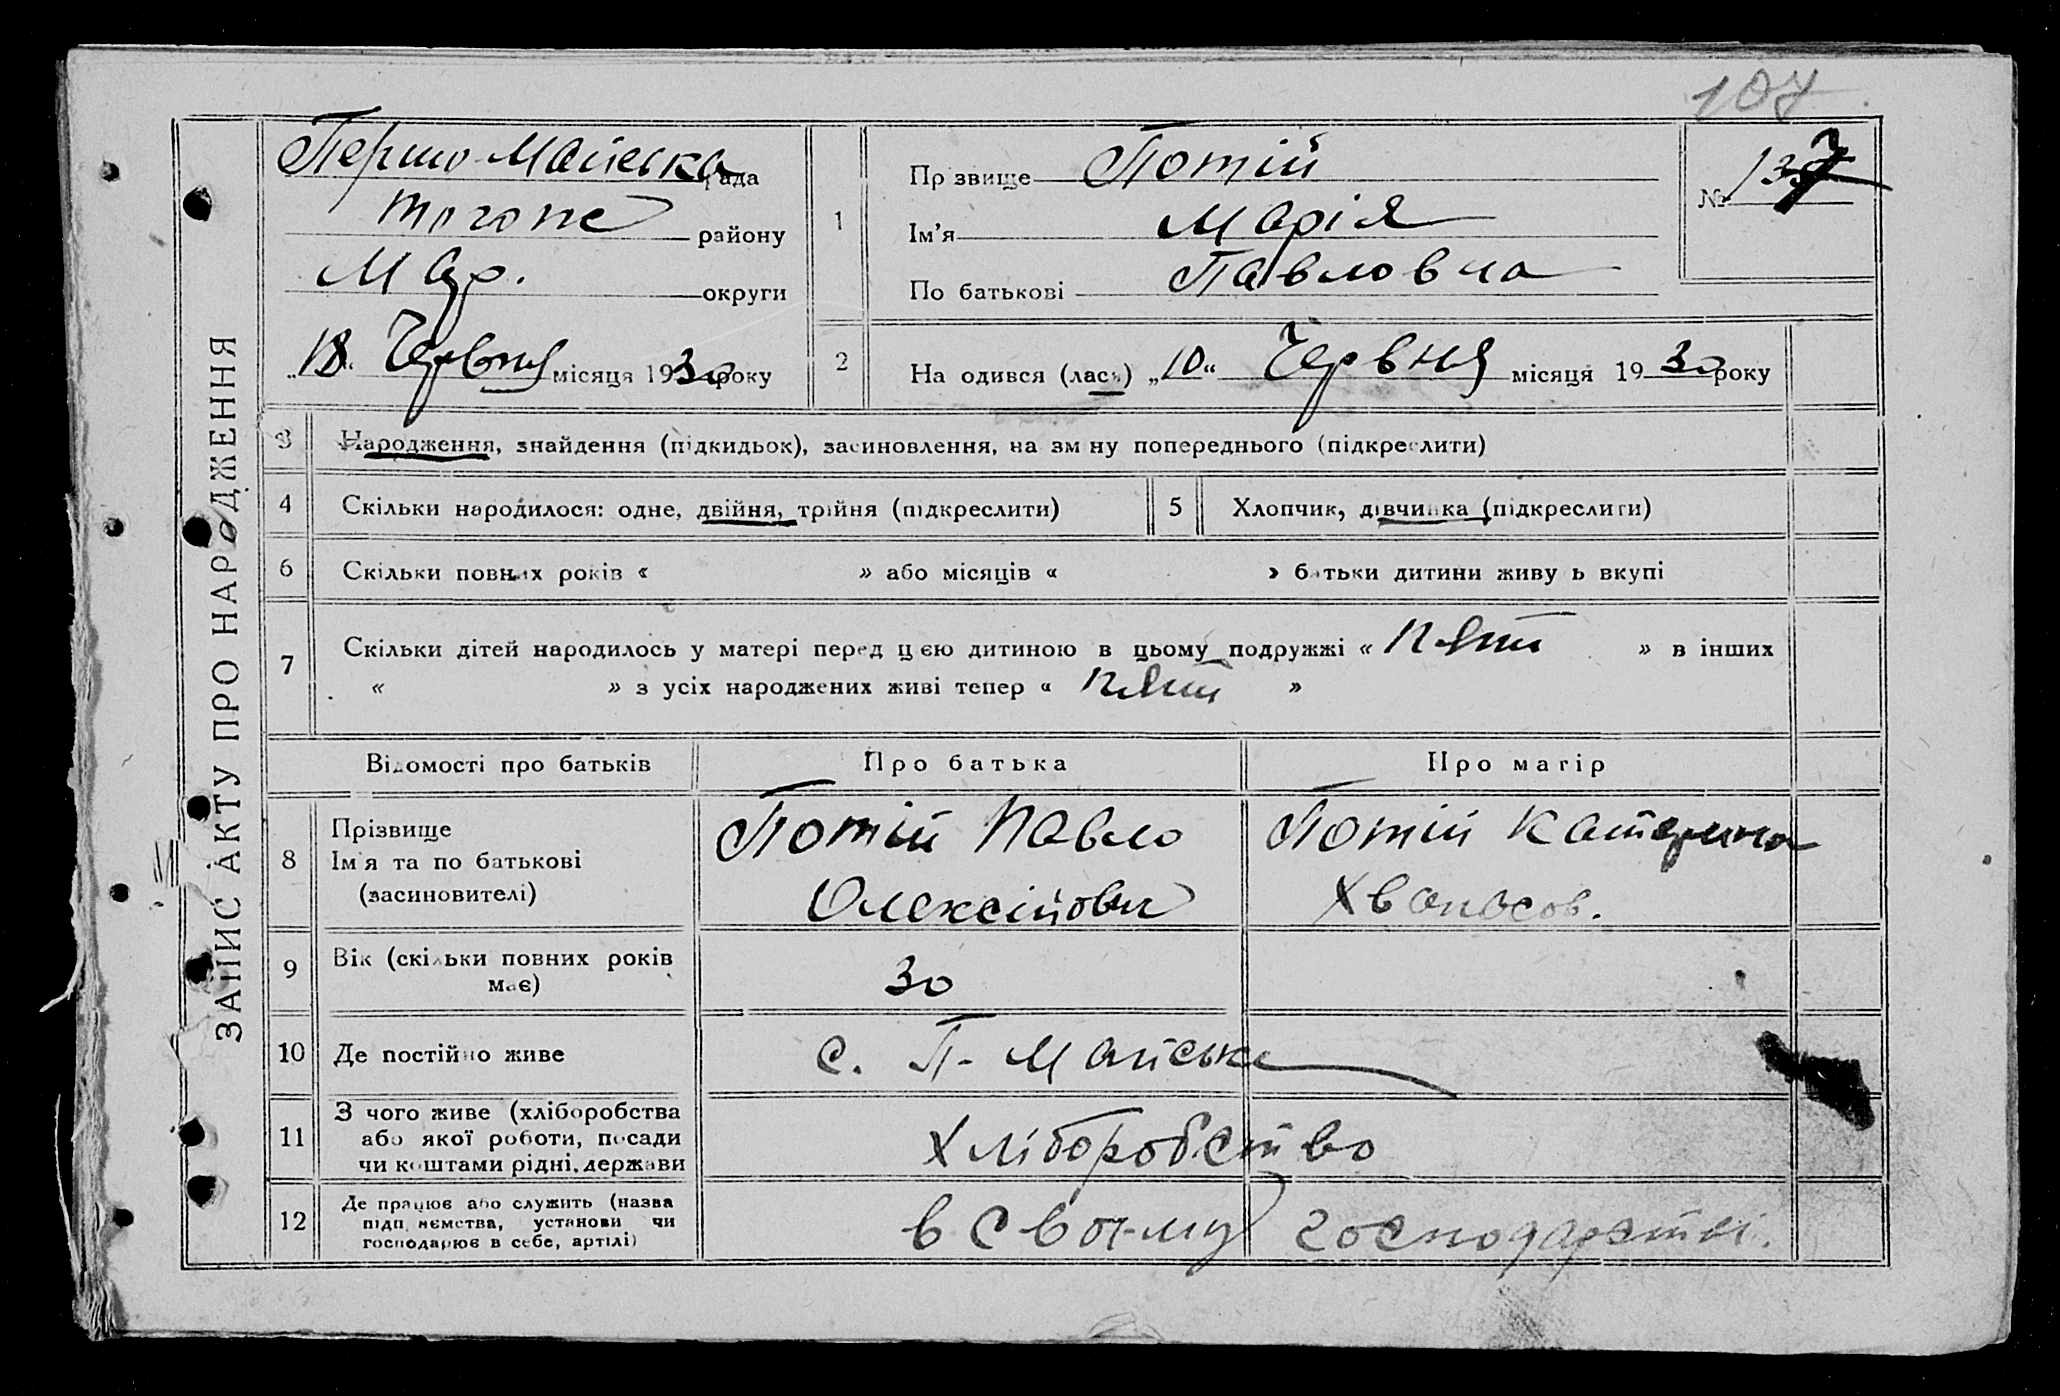 107
ЗАПИС АКТУ ПРО НАРОДЖЕННЯ
Першо-Майська рада
району
Мар. округи
„18“ Червня місяця 1930 року
1
Прізвище Потій
Ім'я Марія
По батькові Павловна
№ 137
2
На одився (лась) „10“ Червня місяця 1930 року
3 Народження, знайдення (підкидьок), засиновлення, на зм ну попереднього (підкреслити)
4 Скільки народилося: одне, двійня, трійня (підкреслити)
5 Хлопчик, дівчинка (підкреслити)
6 Скільки повних років « » або місяців « » батьки дитини живу ь вкупі
7 Скільки дітей народилось у матері перед цією дитиною в цьому подружжі « пять » в інших
« » з усіх народжених живі тепер « пять »
Відомості про батьків Про батька Про матір
8
Прізвище
Ім'я та по батькові
(засиновителі)
Потій Павло
Олексійович
Потій Катерина
Хванасов.
9 Вік (скільки повних років
має)
30
10 Де постійно живе
с. П-Майське
11
З чого живе (хліборобства
або якої роботи, посади
чи коштами рідні, держави
Хліборобство
12
Де працює або служить (назва
підп иємства, установи чи
господарює в себе, артілі)
в своєму господарстві.